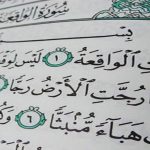 سُورَةُ الوَاقِعَة
بِسْ
تِ ٱلْوَاقِعَةُ ١ لَيْسَ لِوَقْ
رُجَّتِ ٱلْأَرْضُ رَجًّا
هَبَآءً مُّنۢبَثًّا ٦ وَكُ